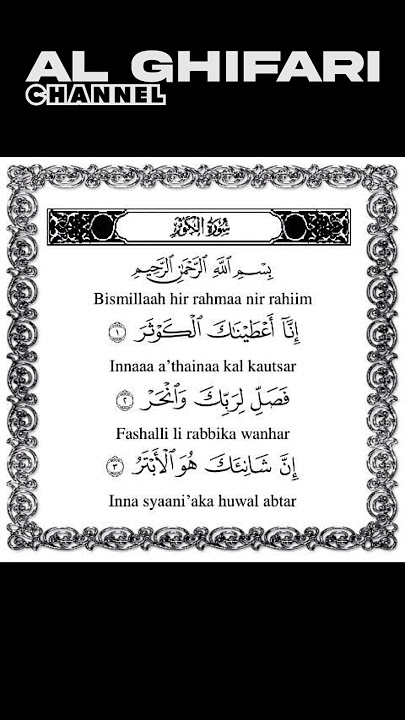 AL GHIFARI
CHANNEL
سُورَةُ الْكَوْثَرِ
بِسْمِ اللَّهِ الرَّحْمَٰنِ الرَّحِيمِ
Bismillaah hir rahmaa nir rahiim
إِنَّا أَعْطَيْنَاكَ الْكَوْثَرَ ١
Innaaa a’thainaa kal kautsar
فَصَلِّ لِرَبِّكَ وَانْحَرْ ٢
Fashalli li rabbika wanhar
إِنَّ شَانِئَكَ هُوَ الْأَبْتَرُ ٣
Inna syaani’aka huwal abtar